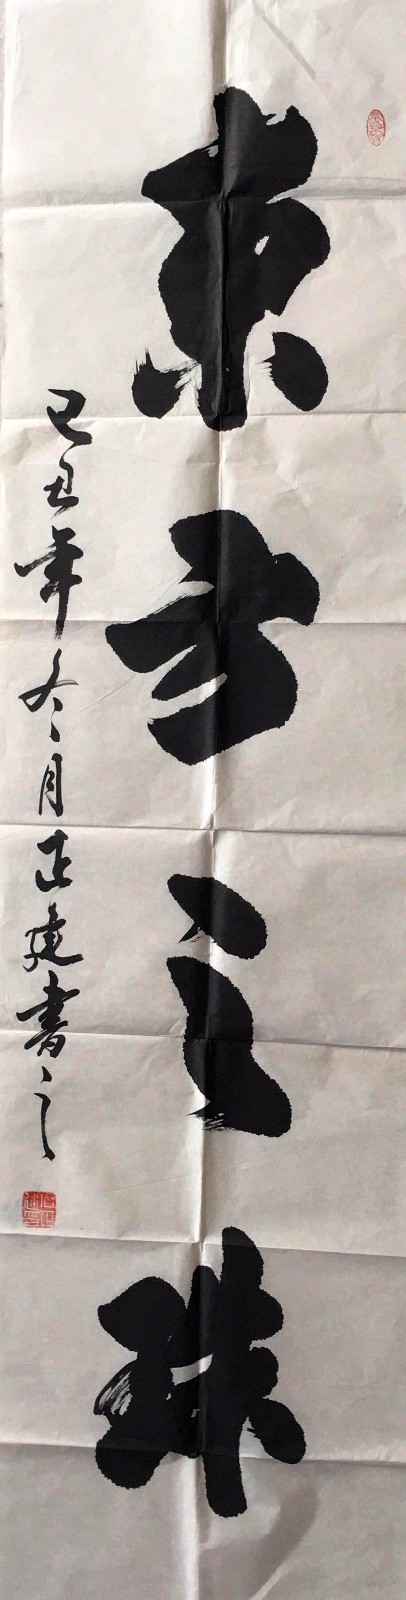 東方之珠
己丑年冬月正建書之